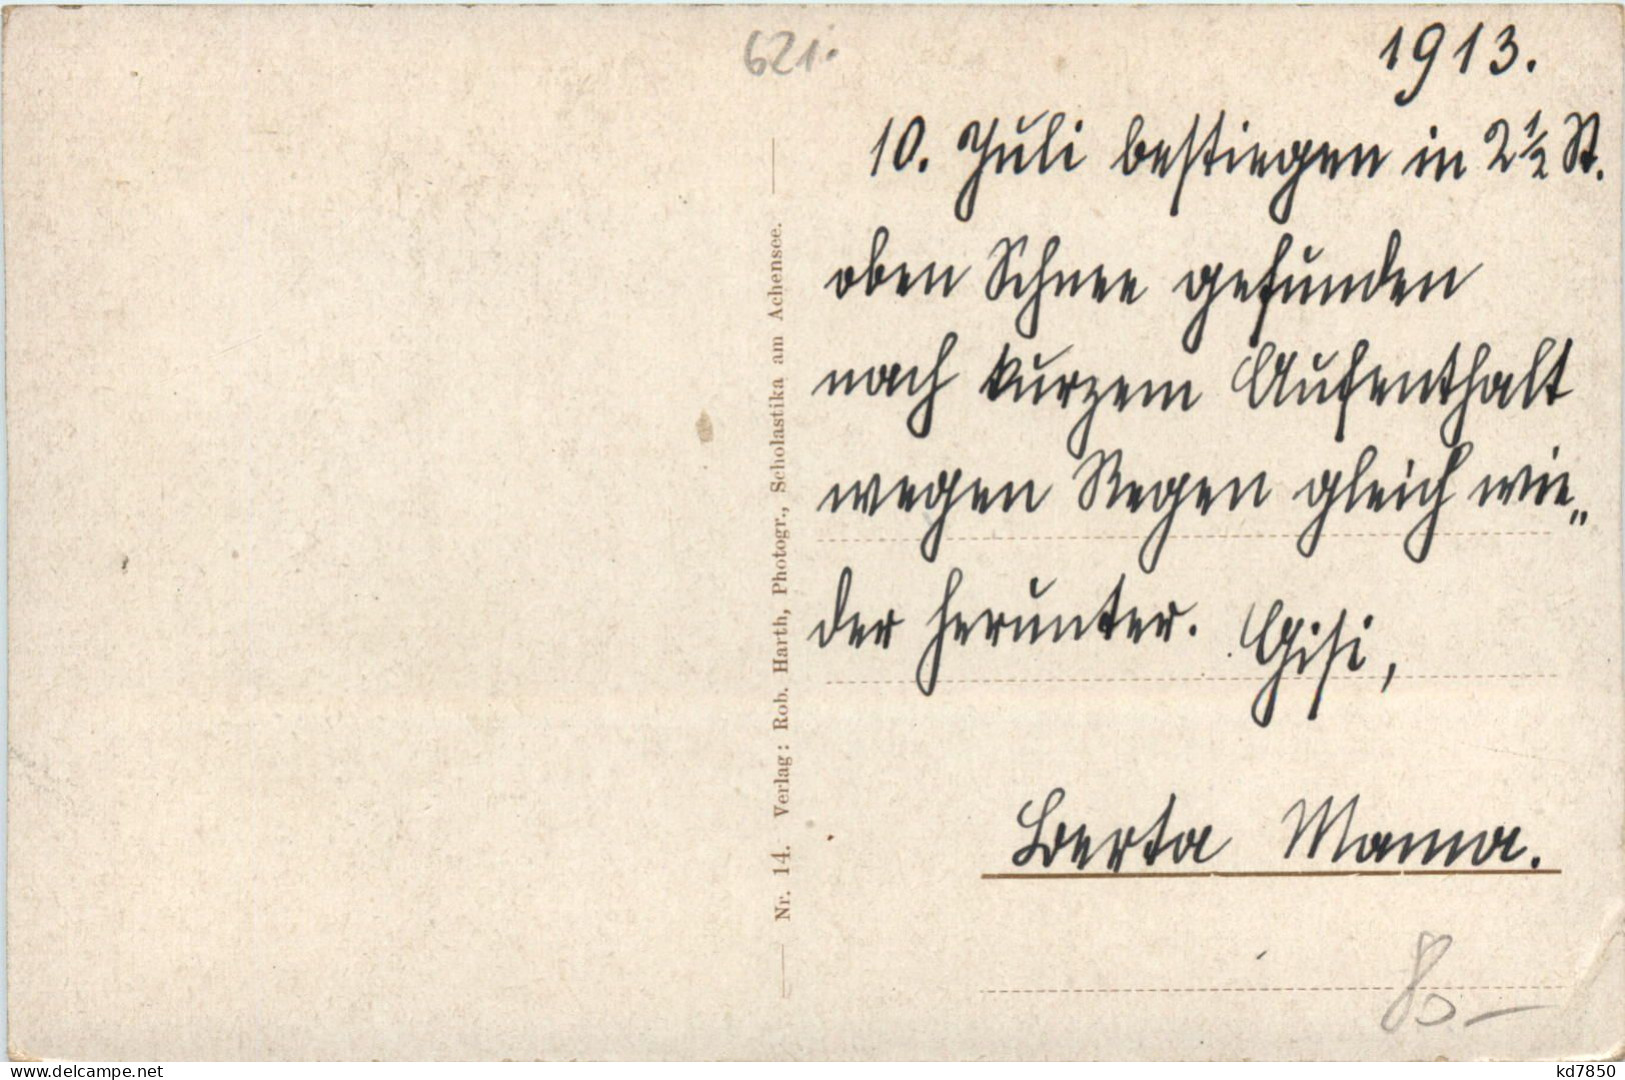 621.
1913.
10. Juli bestiegen in 2½ St.
oben Schnee gefunden
nach kurzem Aufenthalt
wegen Regen gleich wie„
der herunter. Gisi,
Berta Mama.
Nr. 14. Verlag: Rob. Harth, Photogr., Scholastika am Achensee.
80-
www.delcampe.net
kd7850